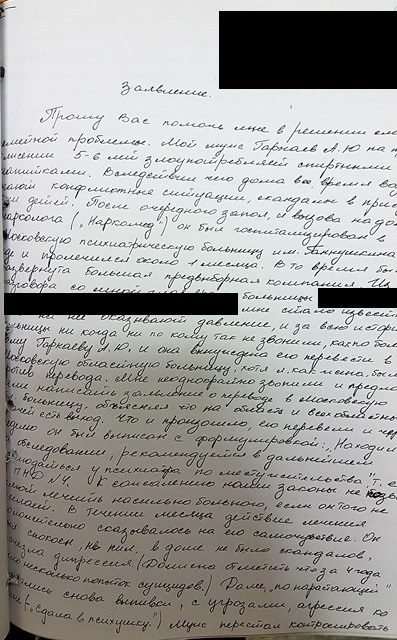 Заявление.
Прошу Вас помочь мне в решении
семейной проблемы. Мой муж Гарнаев Л.Ю на
5-6 лет злоупотребляет спиртными
напитками. Вследствие чего дома все время
конфликтные ситуации, скандалы в
детей. После очередного запоя, и вызова на дом
нарколога („Наркомед") он был госпитализирован в
Московскую психиатрическую больницу им. Ганнушкина
где и пролечился около 1 месяца. В то время была
развернута большая предвыборная компания. Из
разговора со мной больницы
мне стало
на неё оказывают давление, и за всю историю
больницы никогда ни по кому так не звонили, как по
моему Гарнаеву Л.Ю, и она вынуждена его перевести в
Московскую областную больницу, хотя я, как жена, была
против перевода. Мне неоднократно звонили и
написать заявление о переводе в Московскую
больницу, объясняя что на область и
есть выход. Что и произошло, его перевели и
он был выписан с формулировкой: „Находился
на обследовании, рекомендуется в дальнейшем
наблюдаться у психиатра по месту жительства" т.е.
ПНД №4. К сожалению наши законы не
лечить насильно больного, если он того не
желает. В течении месяца действие лечения
положительно сказывалось на его самочувствие. Он
спокоен, не пил, в доме не было скандалов,
депрессия. (Должна отметить что за 4 года
несколько попыток суицидов.) Далее, „по нарастающей"
снова выпивки, с угрозами, агрессия ко
мне („сдала в психушку.") Муж перестал контролировать